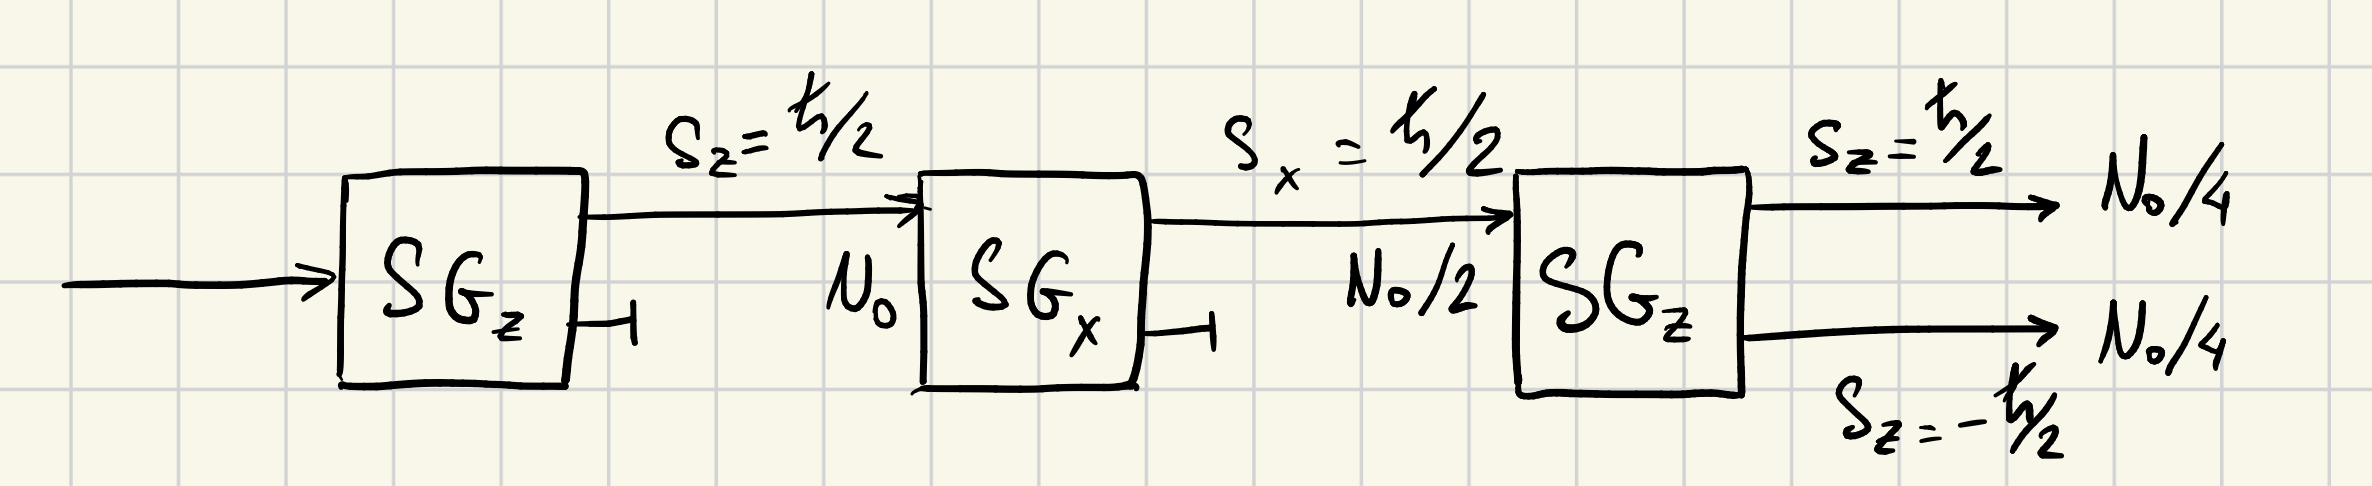 SG_z
S_z = ħ/2
N_0
SG_x
S_x = ħ/2
N_0/2
SG_z
S_z = ħ/2
N_0/4
N_0/4
S_z = -ħ/2